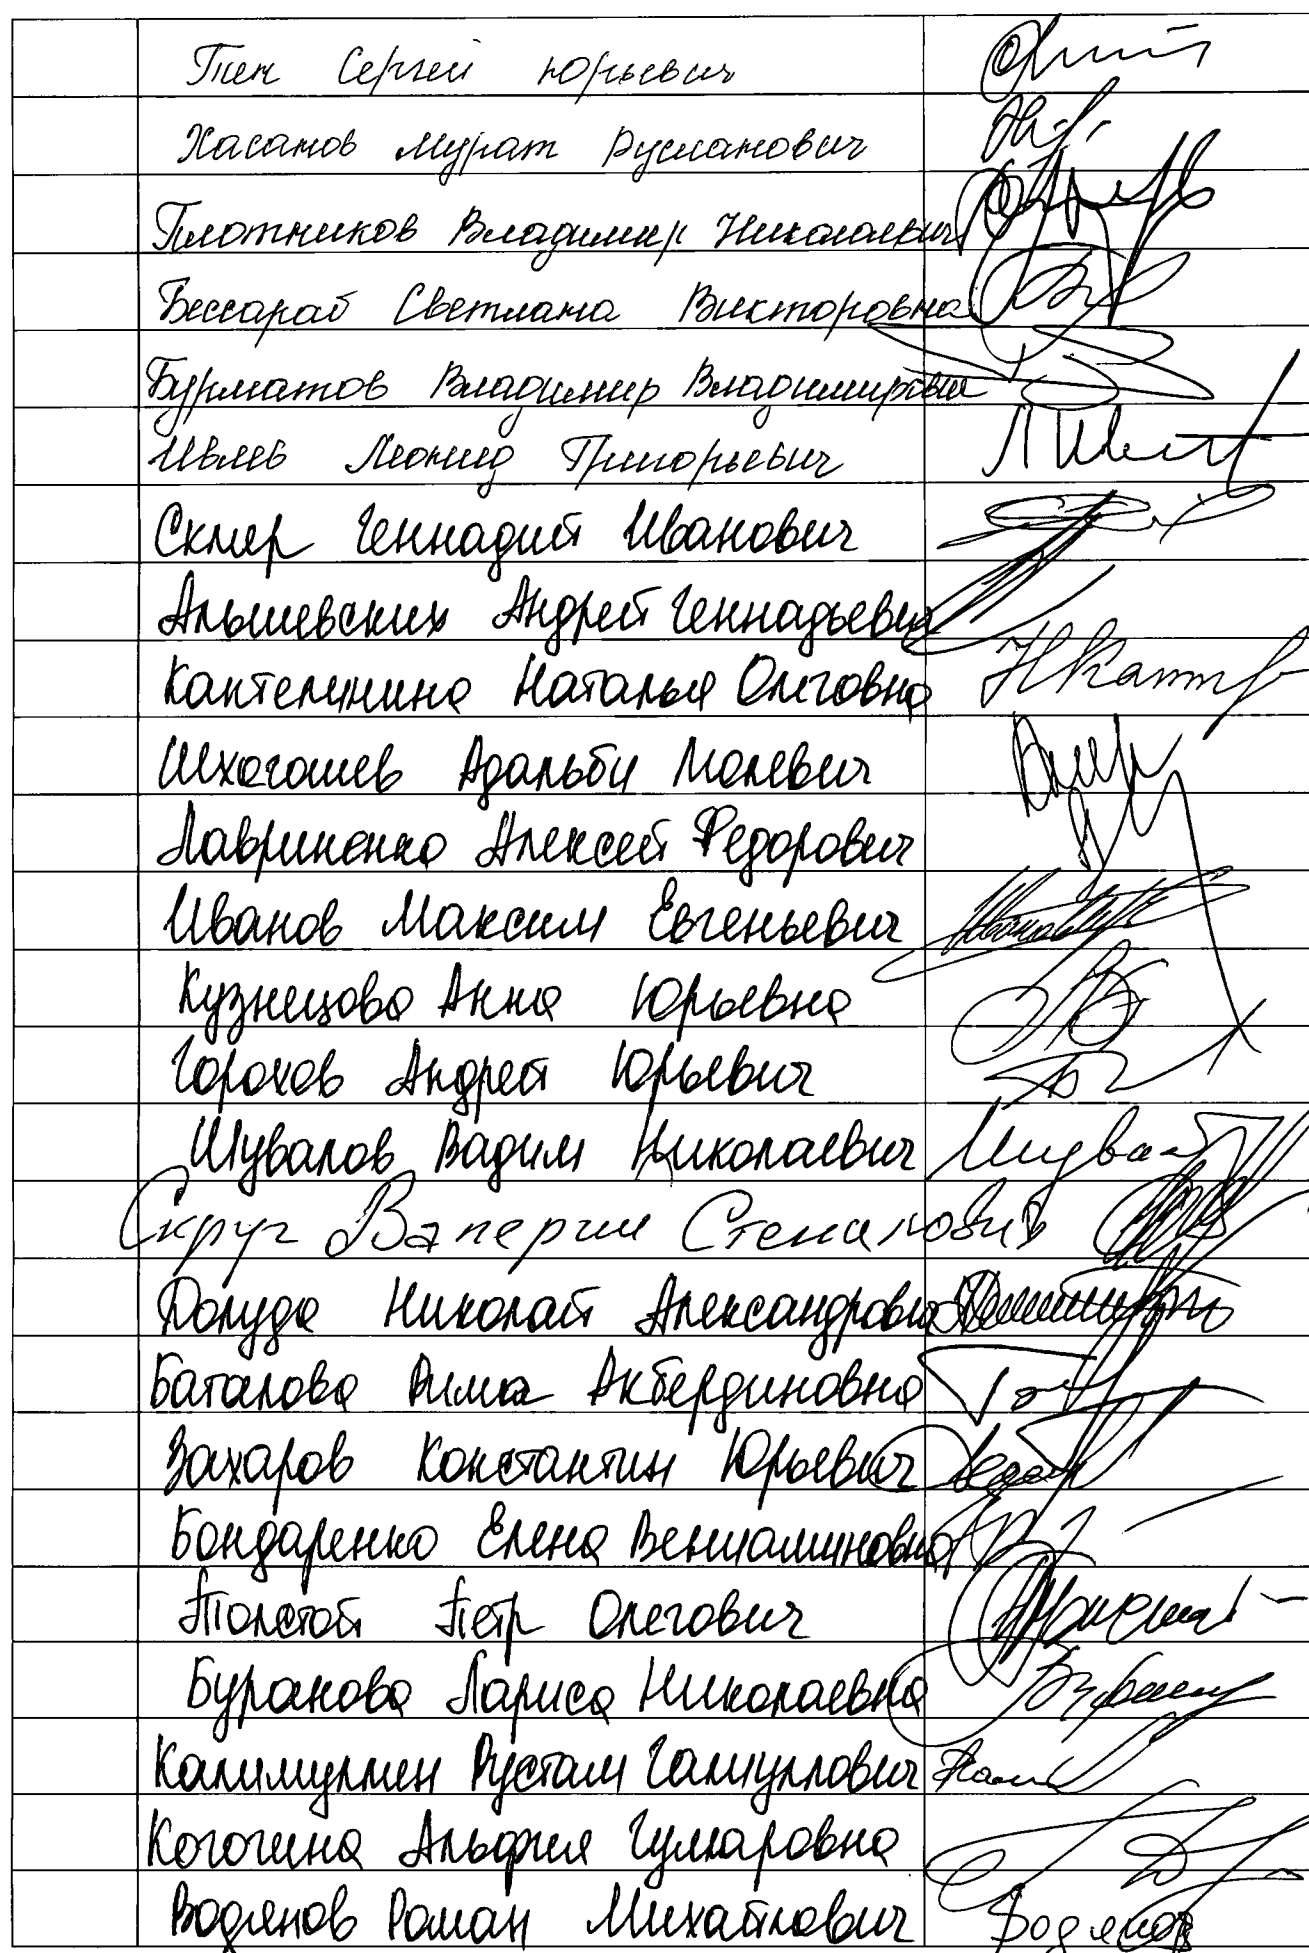 Тен Сергей Юрьевич
Хасанов Мурат Русланович
Плотников Владимир Николаевич
Бессараб Светлана Викторовна
Бурматов Владимир Владимирович
Ивлев Леонид Григорьевич
Скляр Геннадий Иванович
Альшевских Андрей Геннадьевич
Костенко Наталья Олеговна
Шхагошев Адальби Люлевич
Лавриненко Алексей Федорович
Иванов Максим Евгеньевич
Кузнецова Анна Юрьевна
Горохов Андрей Юрьевич
Шувалов Вадим Николаевич
Скруг Валерий Степанович
Долуда Николай Александрович
Баталова Рима Акбердиновна
Захаров Константин Юрьевич
Бондаренко Елена Вениаминовна
Толстой Петр Олегович
Буранова Лариса Николаевна
Калимуллин Рустам Гамиуллович
Когогина Альфия Гумаровна
Водянов Роман Михайлович Водянов